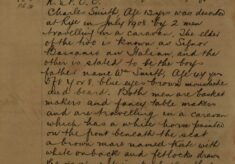 Charles Smith, Age 11 yrs was deserted
at Rye in July 1908 by 2 men
travelling in a caravan. The elder
of the two is known as
an Italian and the
other is stated to be the boys
father name Wm Smith, Age 44 yrs
blue eyes brown moustache
beard. Both men are basket
makers and fancy table makers
and are travelling in a caravan
which has a white horse painted
on the front beneath the seat
a brown mare named that with
white and fetlocks draws